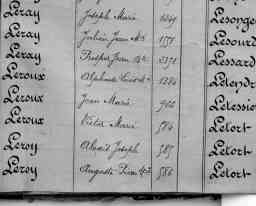 Leray Joseph Marie 1269 Lesong
Leray Julien Jean Mie 1571 Lesourd
Leray Prosper Jean 2371 Lessard
Leroux Alphonse 1284 Letendr
Leroux Jean Marie 900 Letessie
Leroux Victor Marie 584 Letort
Leroy Alexis Joseph 585 Letort
Leroy Auguste 586 Letort